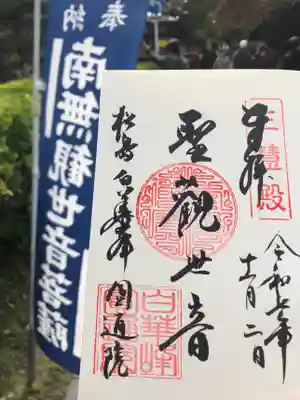 奉納
南無観世音菩薩
奉拝
三慧殿
聖觀世音
松島 白華峰 圓通院
白華峰
令和七年
十一月二日